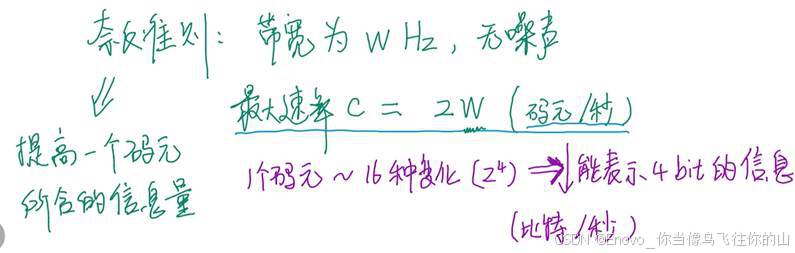 奈氏准则：带宽为 W Hz，无噪声
最大速率 C = 2W (码元/秒)
提高一个码元
所含的信息量
1个码元 ~ 16种变化 (2⁴) ⇒ 能表示4 bit的信息
(比特/秒)
CSDN @Enovo_你当像鸟飞往你的山